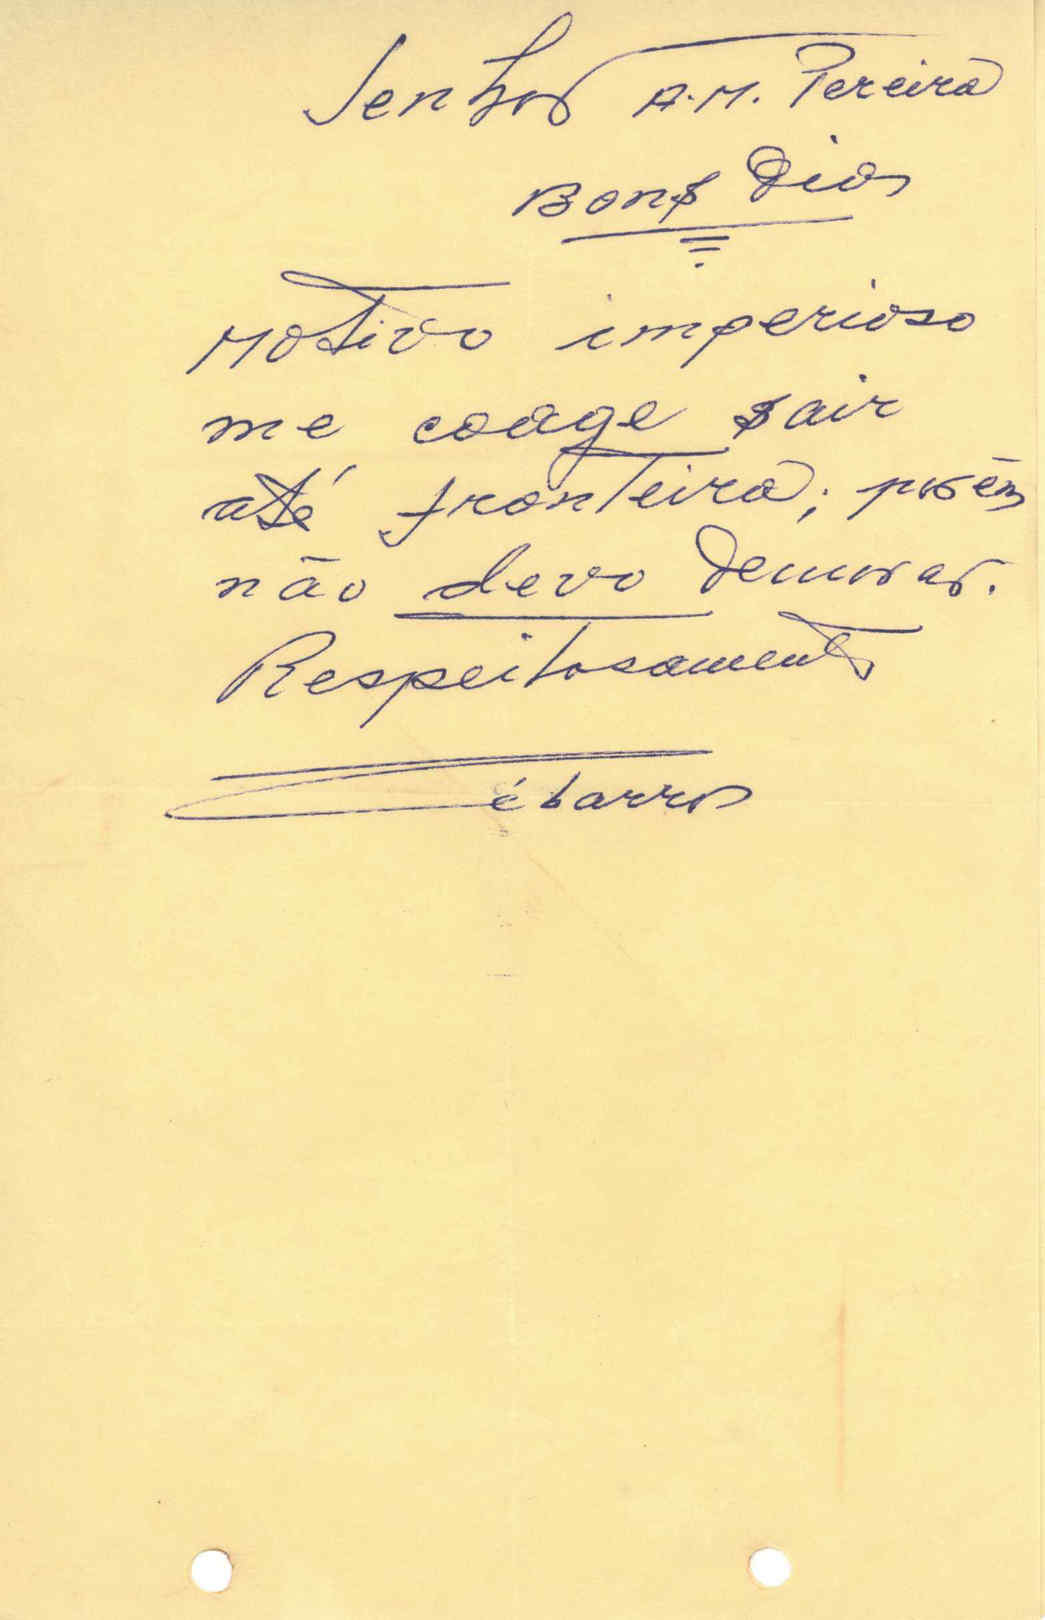 Senhor A.M. Pereira
Bons Dias
Motivo imperioso
me coage sair
até fronteira; porém
não devo demorar.
Respeitosamente
Cébarros